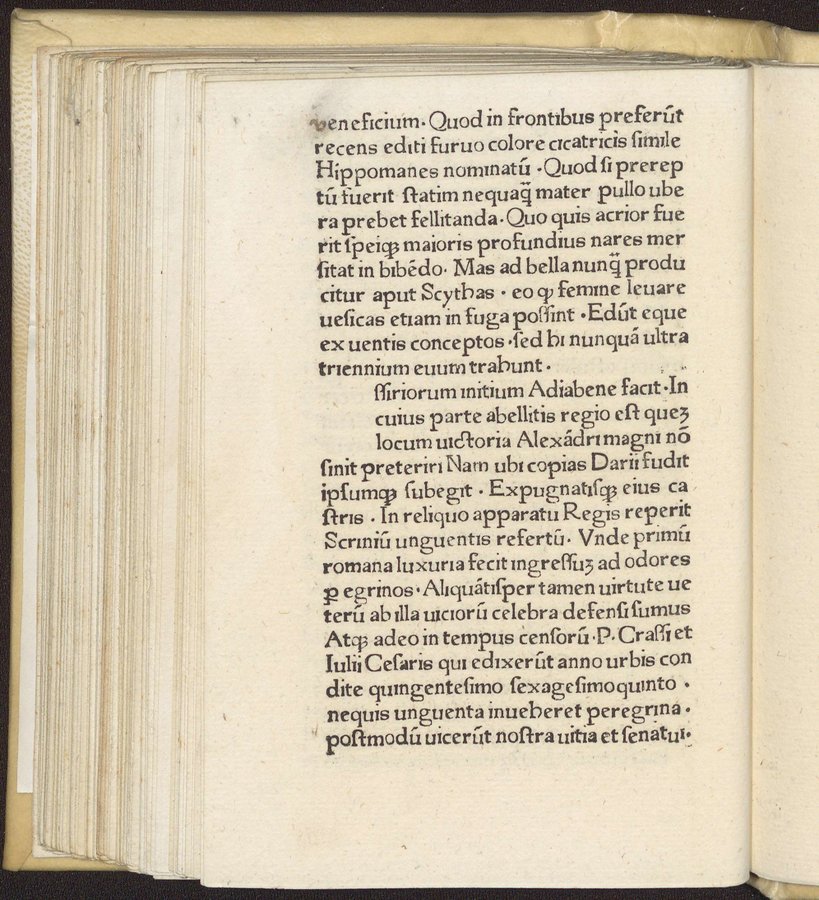 veneficium. Quod in frontibus preferūt
recens editi furuo colore cicatricis simile
Hippomanes nominatū .Quod si prerep
tū fuerit statim nequaq̄ mater pullo ube
ra prebet fellitanda. Quo quis acrior fue
rit speiqꝫ maioris profundius nares mer
sitat in bibēdo. Mas ad bella nunq̄ produ
citur aput Scythas . eo ꝙ femine leuare
uesicas etiam in fuga possint .Edūt eque
ex uentis conceptos .sed hi nunquā ultra
triennium euum trahunt.
ssiriorum initium Adiabene facit.In
cuius parte abellitis regio est queꝫ
locum uictoria Alexādri magni nō
sinit preteriri Nam ubi copias Darii fudit
ipsumqꝫ subegit . Expugnatisqꝫ eius ca
stris . In reliquo apparatu Regis reperit
Scriniū unguentis refertū. Vnde primū
romana luxuria fecit ingressuꝫ ad odores
ꝑ egrinos. Aliquātisper tamen uirtute ue
terū ab illa uiciorū celebra defensi sumus
Atqꝫ adeo in tempus censorū .P. Crassi et
Iulii Cesaris qui edixerūt anno urbis con
dite quingentesimo sexagesimoquinto .
nequis unguenta inueheret peregrina.
postmodū uicerūt nostra uitia et senatui.